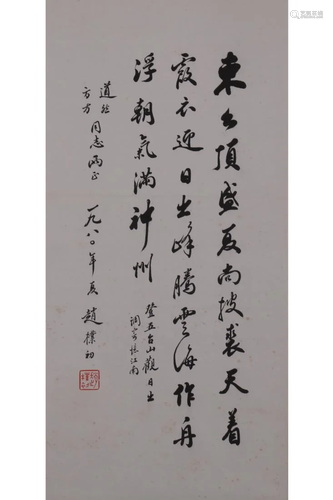 東台頂盛夏尚披裘天着
霞衣迎日出峰騰雲海作舟
浮朝氣滿神州
登五台山觀日出
調寄憶江南
道
方方 同志兩正
一九八〇年夏 趙樸初